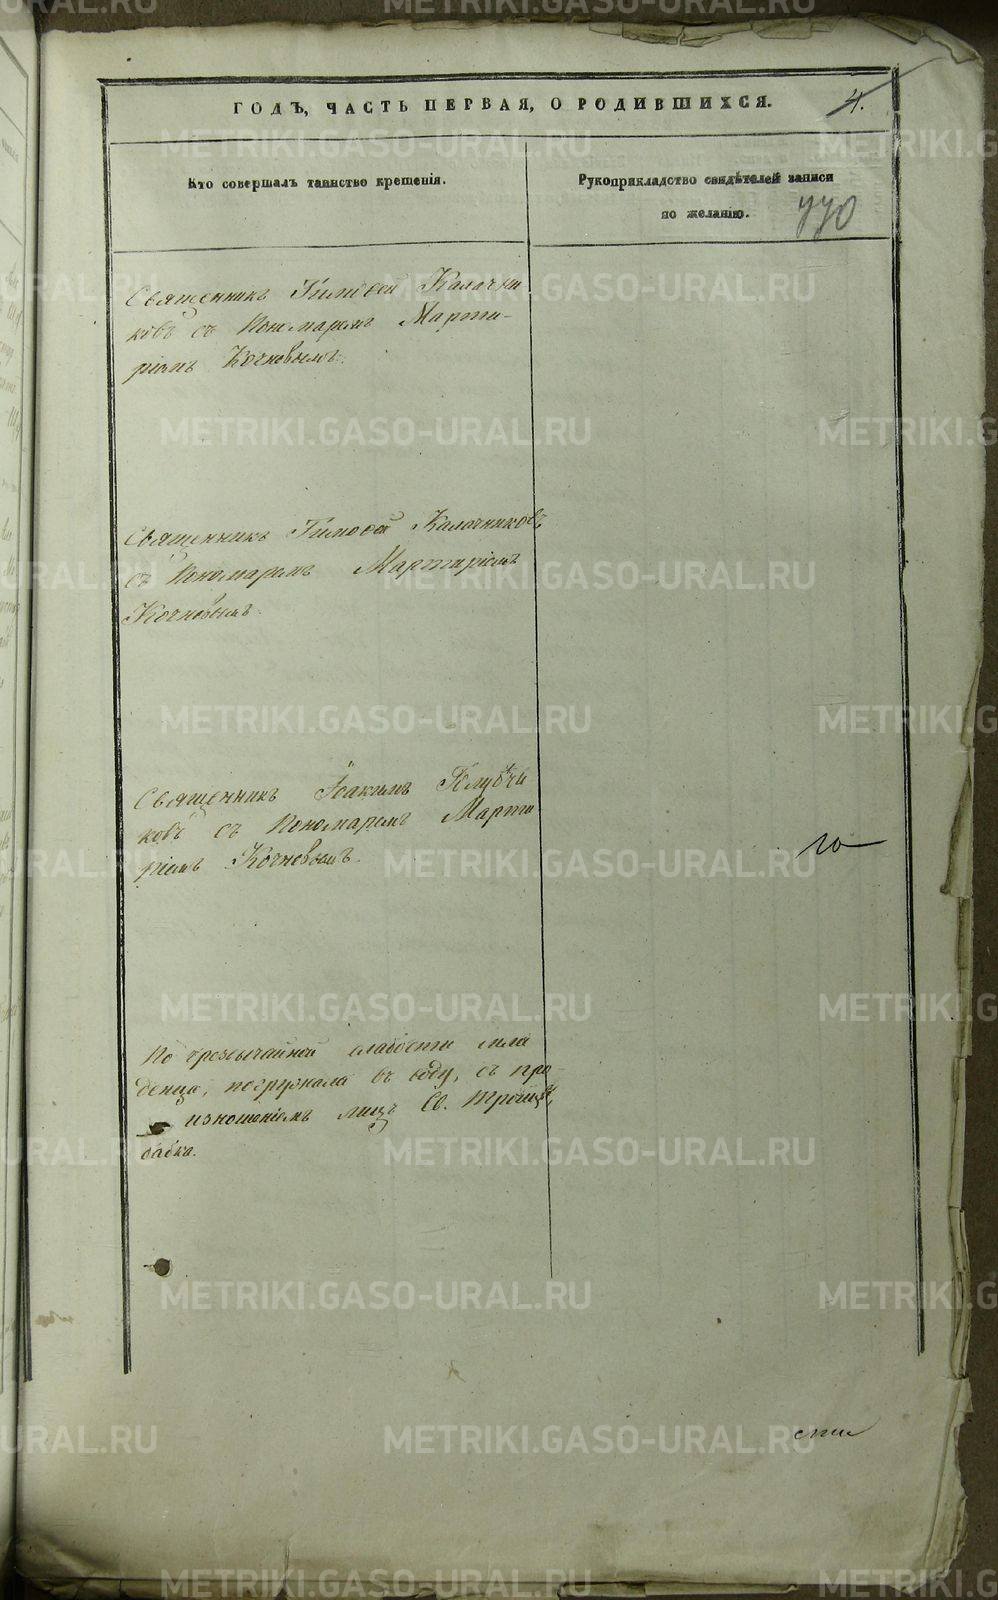 ГОДЪ, ЧАСТЬ ПЕРВАЯ, О РОДИВШИХСЯ.
4.
Кто совершалъ таинство крещенія.
Рукоприкладство свидѣтелей записи
по желанію.
770
Священникъ Тимоѳей Калачни
ковъ съ Пономаремъ Марти-
ріемъ Кочневымъ.
Священникъ Тимоѳей Калачниковъ
съ Пономаремъ Мартиріемъ
Кочневымъ.
Священникъ Іоакимъ Голубчи
ковъ съ Пономаремъ Марти
ріемъ Кочневымъ.
По чрезвычайной слабости мла
денца, погружала въ воду, съ про-
изношеніемъ лицъ Св. Троицы,
бабка.
METRIKI.GASO-URAL.RU